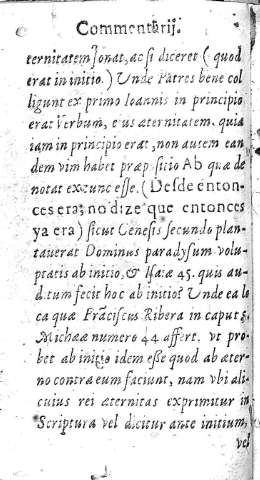 Commentarij.
ternitatem sonat, ac si diceret ( quod
erat in initio.) Unde Patres bene col
ligunt ex primo Ioannis in principio
erat Verbum, eius æternitatem. quia
iam in principio erat, non autem ean
dem vim habet præpositio Ab quæ de
notat ex tunc esse. (Desde enton-
ces era; no dize que entonces
ya era) sicut Genesis secundo plan-
tauerat Dominus paradysum volu-
ptatis ab initio, & Isaiæ 45. quis au-
ditum fecit hoc ab initio? Unde ea lo
ca quæ Frãciscus Ribera in caput 5.
Michææ numero 44 affert. vt pro-
bet ab initio idem esse quod ab æter-
no contra eum faciunt, nam vbi ali-
cuius rei æternitas exprimitur in
Scriptura vel dicitur ante initium,
vel